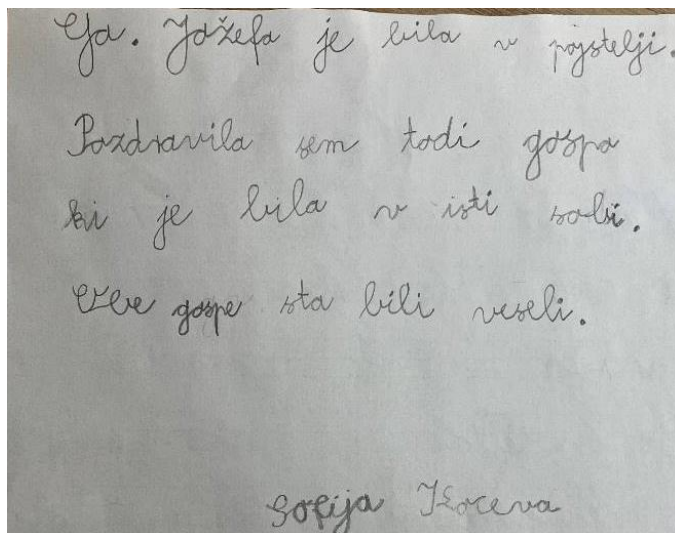 Ga. Jožefa je bila v pojstelji.
Pozdravila sem todi gospo
ki je bila v isti sobi.
Obe gospe sta bili veseli.
Sofija Koceva